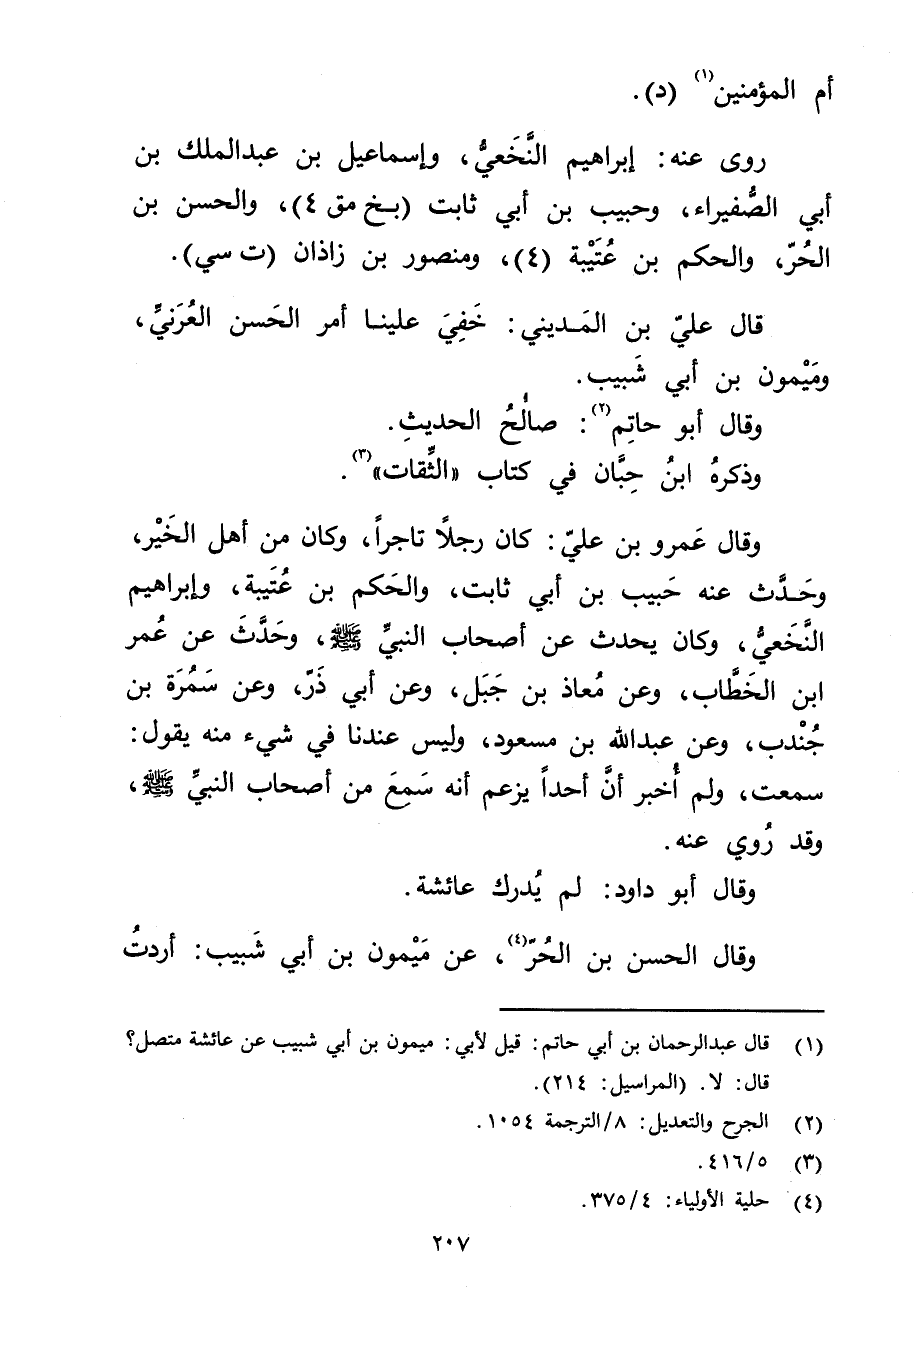 أم المؤمنين(١) (د).
روى عنه: إبراهيم النَّخَعيُّ، وإسماعيل بن عبدالملك بن
أبي الصُّفيراء، وحبيب بن أبي ثابت (بـخ مق ٤)، والحسن بن
الحُرّ، والحكم بن عُتَيْبة (٤)، ومنصور بن زاذان (ت سي).
قال عليّ بن المَـديني: خَفِيَ علينـا أمر الحَسن العُرَنيِّ،
ومَيْمون بن أبي شَبيب.
وقال أبو حاتِم(٢): صالحُ الحديثِ.
وذكرهُ ابنُ حِبَّان في كتاب «الثِّقات»(٣).
وقال عَمرو بن عليّ: كان رجلاً تاجراً، وكان من أهل الخَيْر،
وحَـدَّث عنه حَبيب بن أبي ثابت، والحَكم بن عُتَيبة، وإبراهيم
النَّخَعيُّ، وكان يحدث عن أصحاب النبيِّ ﷺ، وحَدَّثَ عن عُمر
ابن الخَطَّاب، وعن مُعاذ بن جَبَل، وعن أبي ذَرّ، وعن سَمُرَة بن
جُنْدب، وعن عبدالله بن مسعود، وليس عندنا في شيء منه يقول:
سمعت، ولم أُخبر أنَّ أحداً يزعم أنه سَمِعَ من أصحاب النبيِّ ﷺ،
وقد رُوي عنه.
وقال أبو داود: لم يُدرك عائشة.
وقال الحسن بن الحُرّ(٤)، عن مَيْمون بن أبي شَبيب: أردتُ
(١) قال عبدالرحمان بن أبي حاتم: قيل لأبي: ميمون بن أبي شبيب عن عائشة متصل؟
قال: لا. (المراسيل: ٢١٤).
(٢) الجرح والتعديل: ٨/الترجمة ١٠٥٤.
(٣) ٤١٦/٥.
(٤) حلية الأولياء: ٣٧٥/٤.
٢٠٧